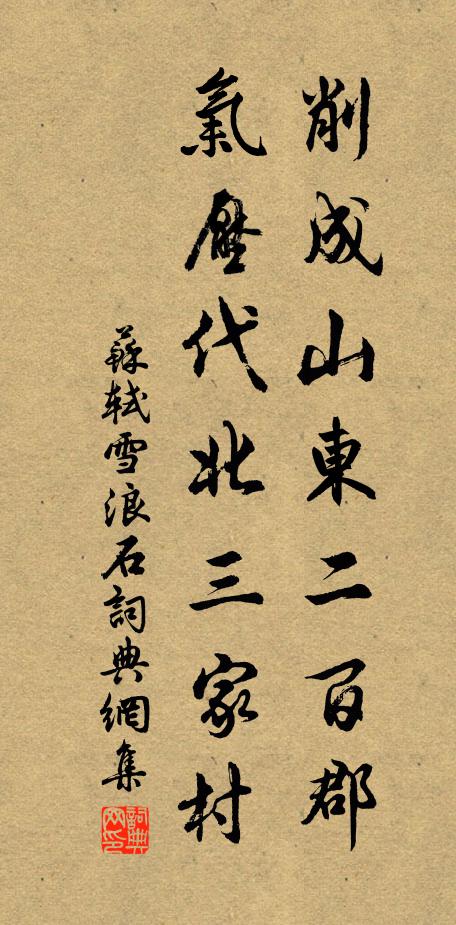 削成山東二百郡
氣壓代北三家村
蘇軾雪浪石詞典網集
詞典网印